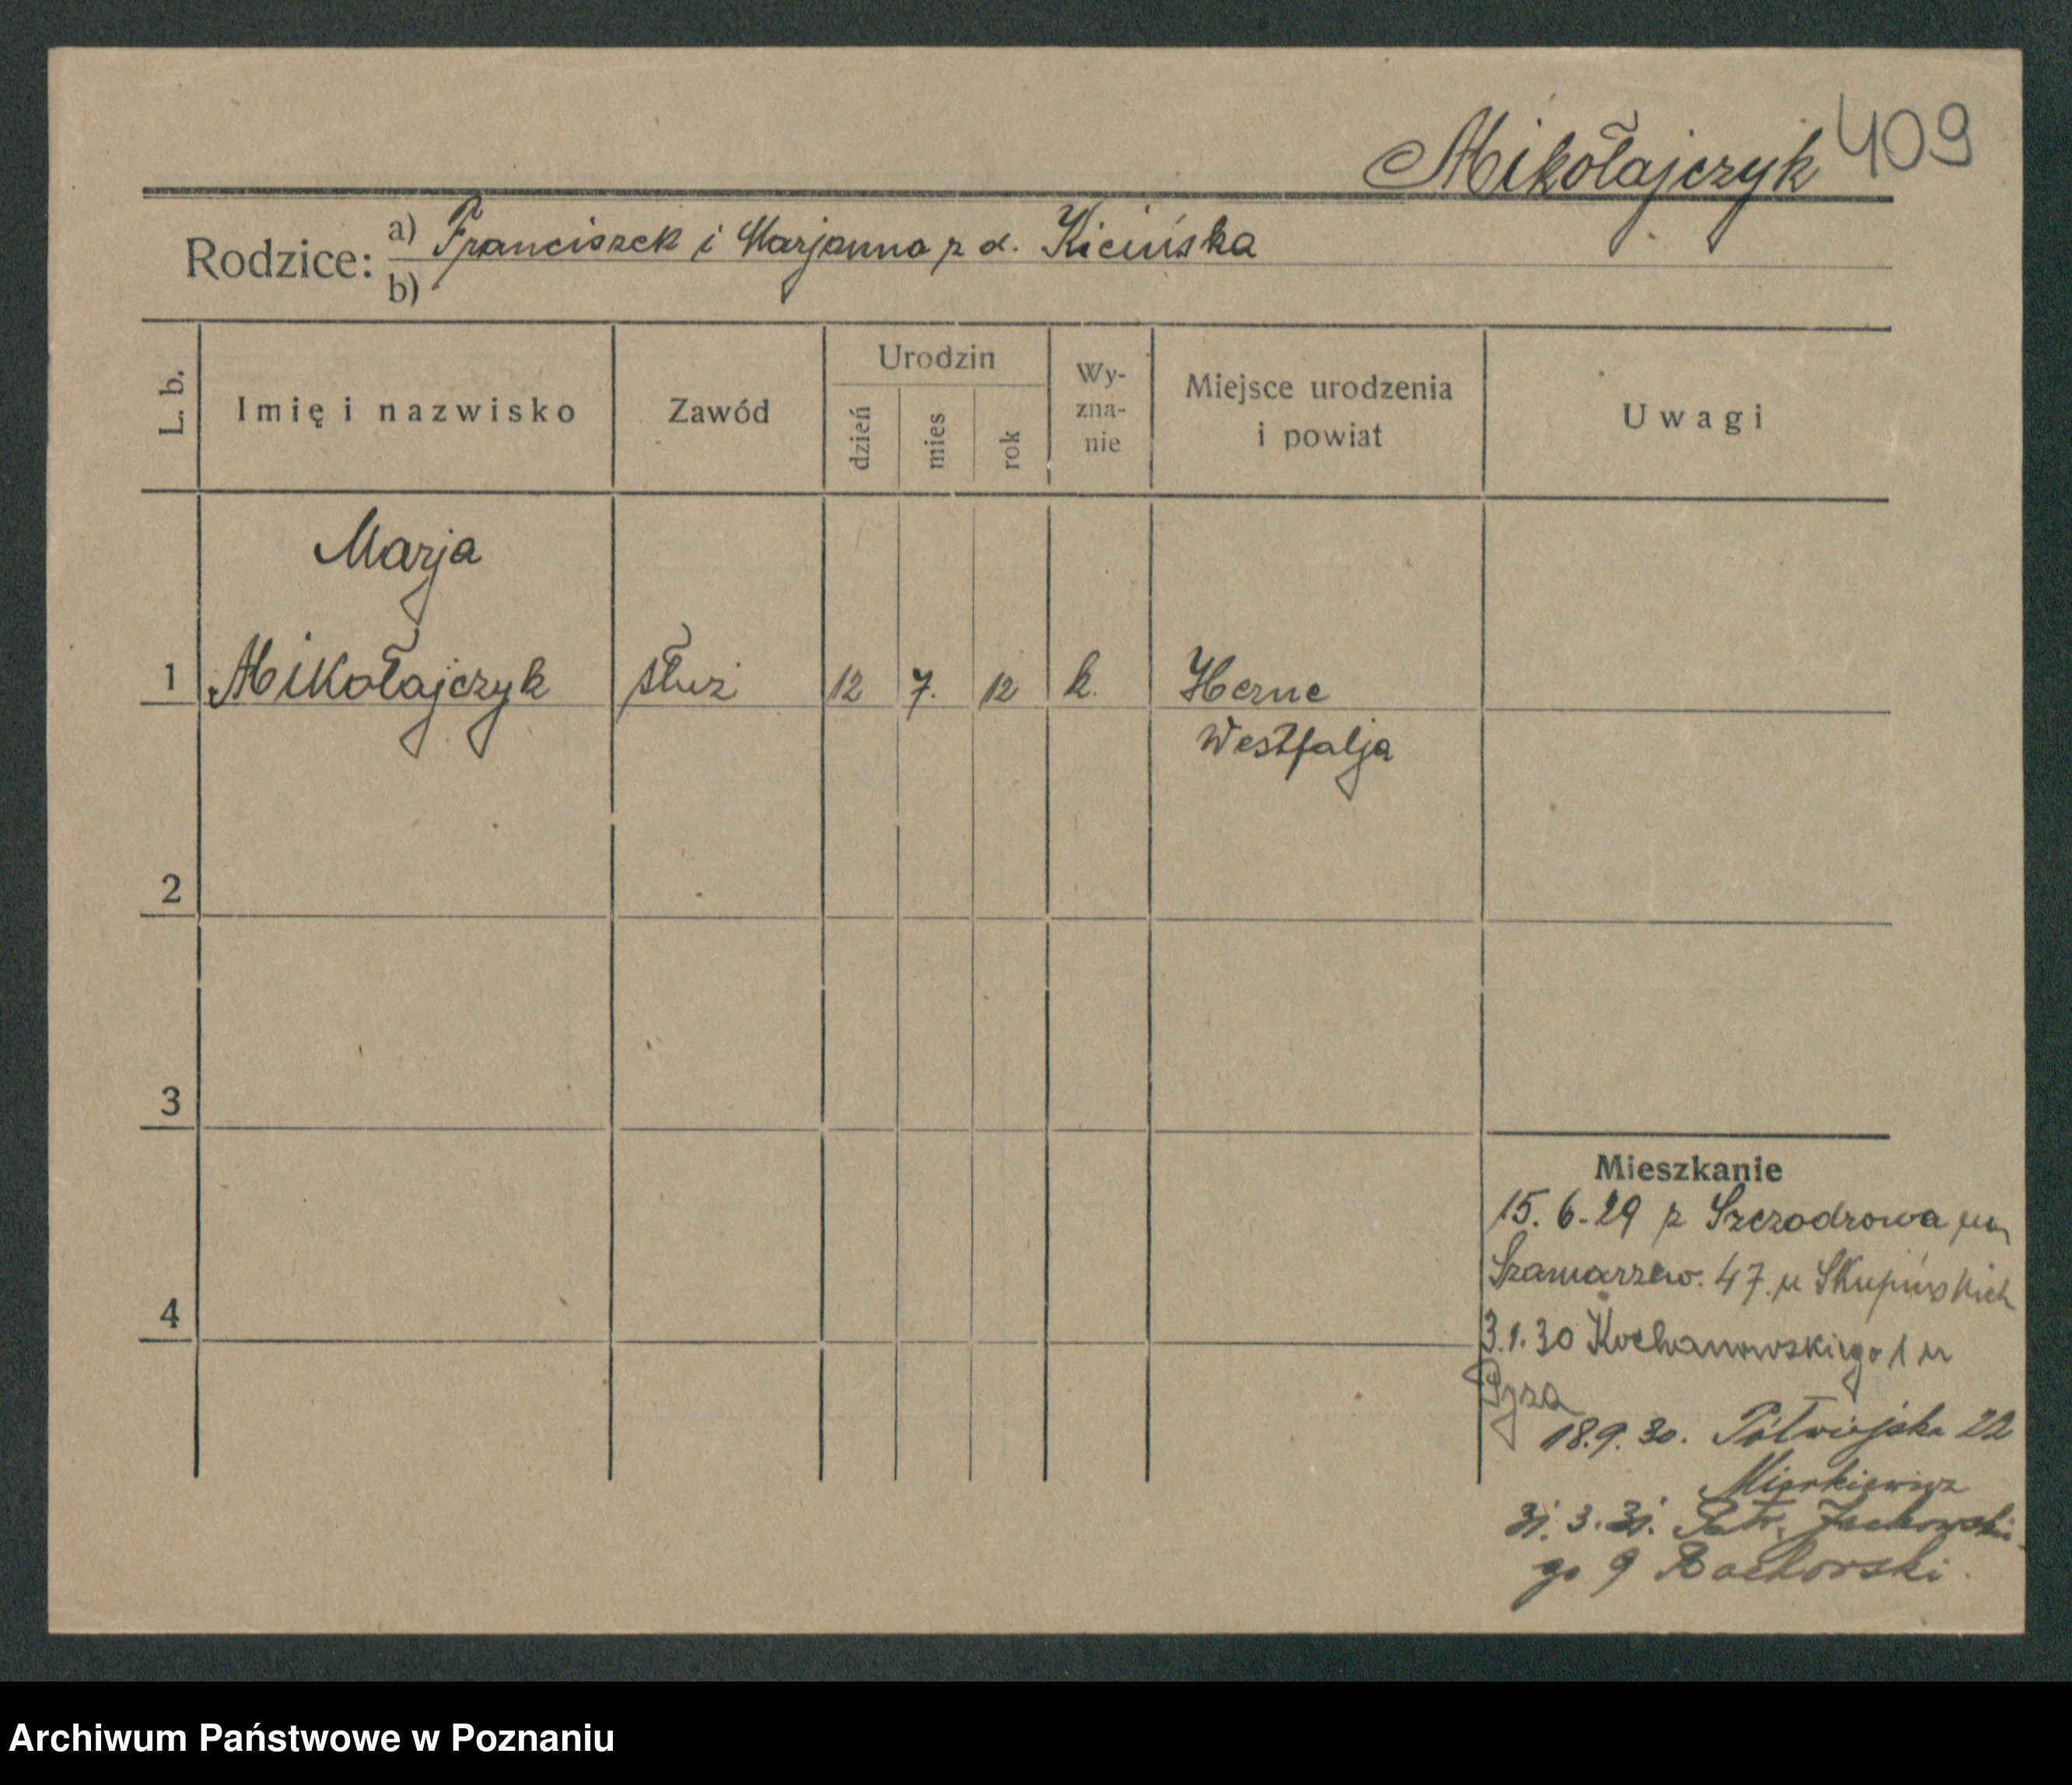 Mikołajczyk 409
Rodzice: a) Franciszek i Marjanna z d. Kicińska
b)
L. b.
Imię i nazwisko
Zawód
Urodzin
dzień
mies
rok
Wy-
zna-
nie
Miejsce urodzenia
i powiat
Uwagi
Marja
1 Mikołajczyk służ 12 7. 12 k. Herne
Westfalja
2
3
4
Mieszkanie
15. 6. 29 z Szczodrowa
Szamarzew. 47. u Skupińskich
3.1.30 Kochanowskiego 1 u
18.9.30. Półwiejska 22
31.3.31. Jackowskie-
go 9
Archiwum Państwowe w Poznaniu